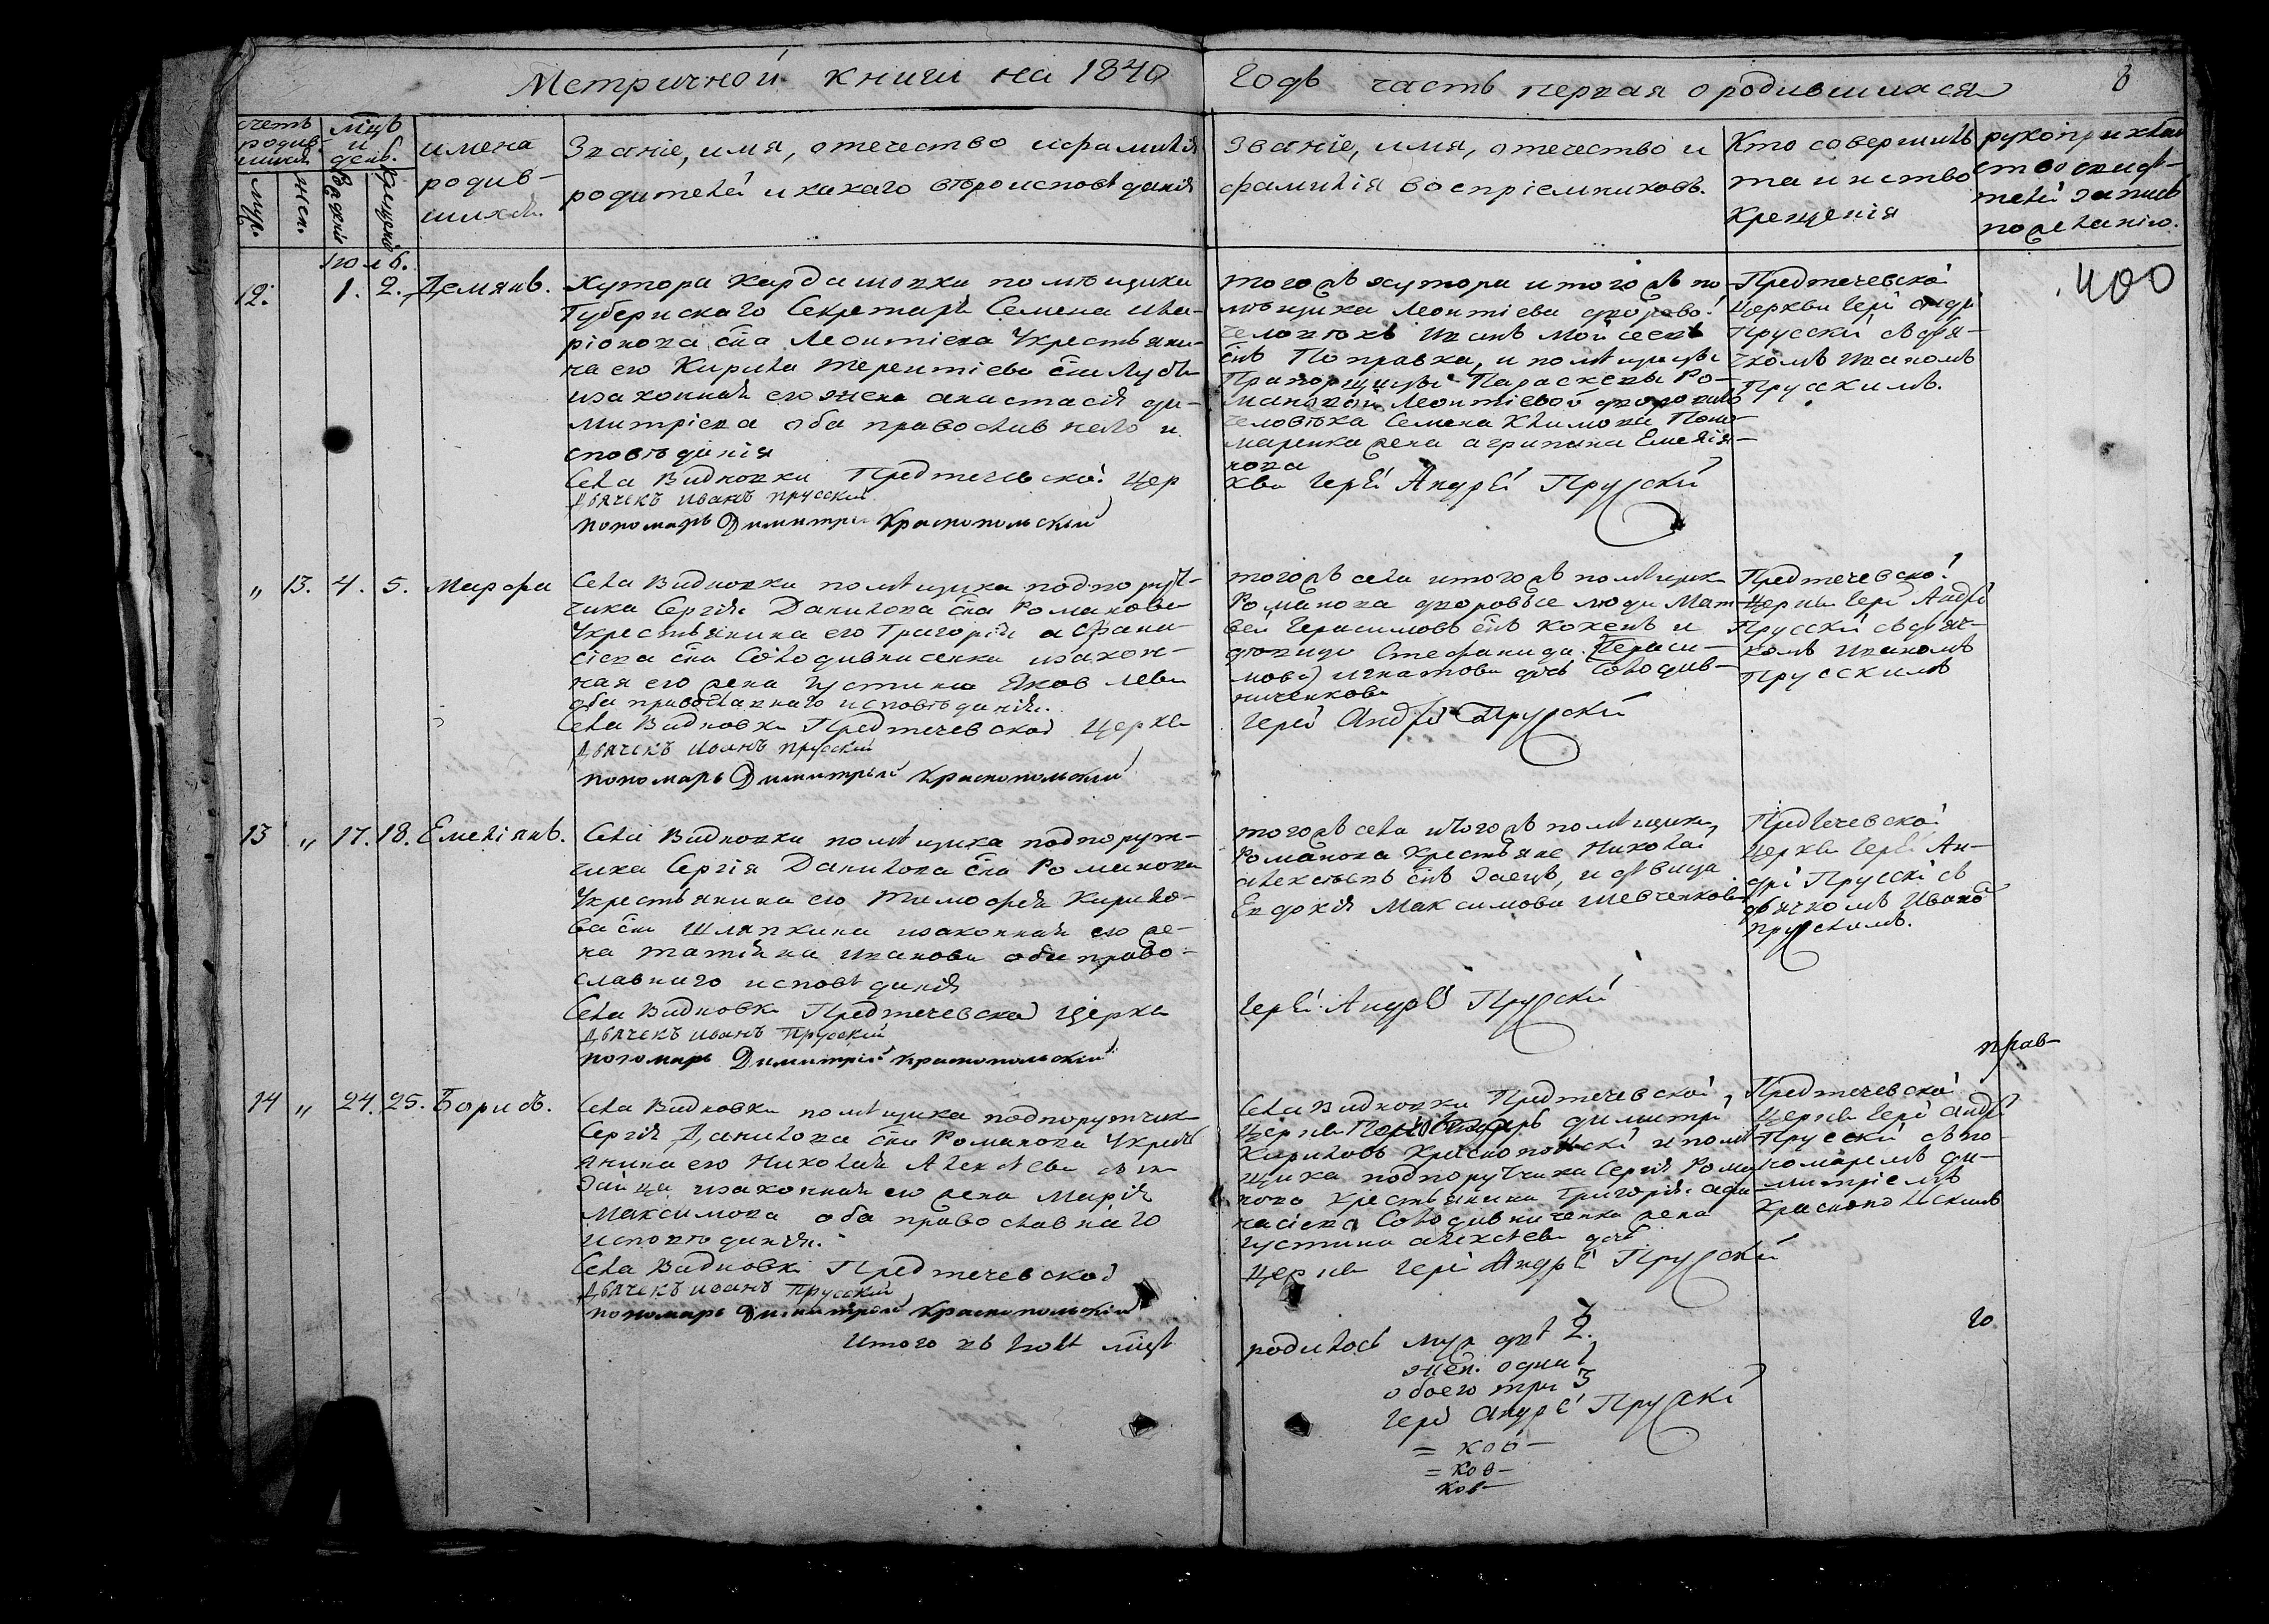 Метричной книги на 1840
Годъ часть первая о родившихся
8
счетъ родив-шихся
мцъ и день.
муж.
жен.
Рожденія
Крещенія
имена
родив-
шихся.
Званіе, имя, отечество и фамилія
родителей и какаго вѣроисповѣданія
Званіе, имя, отечество и
фамилія воспріемниковъ.
Кто совершилъ
таинство
Крещенія
рукоприклад
ство свидѣ-
телей записи
по желанію.
Іюль.
12. 1. 2. Демянъ.
Хутора Кардашовки помѣщика
Губернскаго Секретаря Семена Ила-
ріонова сна Леонтіева Укрестьяни-
на его Кирила Терентіева сна
изаконная его жена анастасія ди-
митріева оба православнаго и
сповѣданія
Села Видновки Предтечевской Цер
дьячекъ иванъ прусскій
пономарь Димитрій Краснопольскій
тогожъ хутора итогожъ по
мѣщика Леонтіева дворовой
человѣкъ Иванъ Мойсеевъ
снъ Поправка, и помѣщицы
Прапорщицы Параскевы Ро-
мановой Леонтіевой двороваго
человѣка Семена Климова Поно-
маренка жена агрипина Емелія-
нова
кви Іерей Андрей Прускій
Предтечевской
Церкви Іерей андрей
Прусскій съ дья-
чкомъ Иваномъ
Прусскимъ.
400
" 13. 4. 5. Марфа
Села Видновки помѣщика подпорут-
чика Сергія Данилова сна Романова
Укрестьянина его Григорія афана-
сіева сна Солодивниченка изакон-
ная его жена Іустина Яковлева
оба православнаго исповѣданія.
Села Видновки Предтечевской Церкви
дьячекъ иванъ прусскій
пономарь Димитрій Краснопольскій
тогожъ села итогожъ помѣщика
Романова дворовые люди Мат-
вей Герасимовъ снъ Коженъ и
дѣвица Стефанида (Гераси-
мова) игнатова дочь Солодив-
ниченкова
Іерей Андрей Прускій
Предтечевской
Церкви Іерей Андрей
Прусскій съ дьяч-
комъ Иваномъ
Прусскимъ
13 " 17. 18. Емеліянъ.
Села Видновки помѣщика подпорут-
чика Сергія Данилова сна Романова
Укрестьянина его Тимофея Кирило-
ва сна Шляпкина изаконная его же-
на татіяна иванова оба право-
славнаго исповѣданія
Села Видновки Предтечевской Церкви
дьячекъ иванъ Прусскій
пономарь Димитрій Краснопольскій
тогожъ села итогожъ помѣщика
Романова Крестьяне Николай
алексѣевъ снъ Заецъ, и дѣвица
Евдокія Максимова Шевченкова
Іерей Андрей Прускій
Предтечевской
Церкви Іерей Ан-
дрей Прусскій съ
дьячкомъ Иваномъ
Прускимъ.
прав-
14 " 24. 25. Борисъ.
Села Видновки помѣщика подпорутчика
Сергія Данилова сна Романова Укресть
янина его Николая Алексѣева сына
Зайца изаконная его жена Марія
Максимова оба православнаго
исповѣданія.
Села Видновки Предтечевской
дьячекъ иванъ Прусскій
пономарь Димитрій Краснопольскій
Итого въ Іюлѣ мцѣ
Села Видновки Предтечевской
Церкви Пономарь димитрій
Кириловъ Краснопольскій и помѣ
щика подпорутчика Сергія Рома
нова Крестьянина Григорія афа
насіева Солодивниченка жена
Іустина алексѣева дочь
Церкви Іерей Андрей Прускій
Предтечевской
Церкви Іерей андрей
Прусскій съ по-
номаремъ ди-
митріемъ
Краснопольскимъ
го
родилось муж двѣ 2. 3
жен. одна 1
обоего три 3
Іерей Андрей Прускій
= ков-
= ков-
ков-